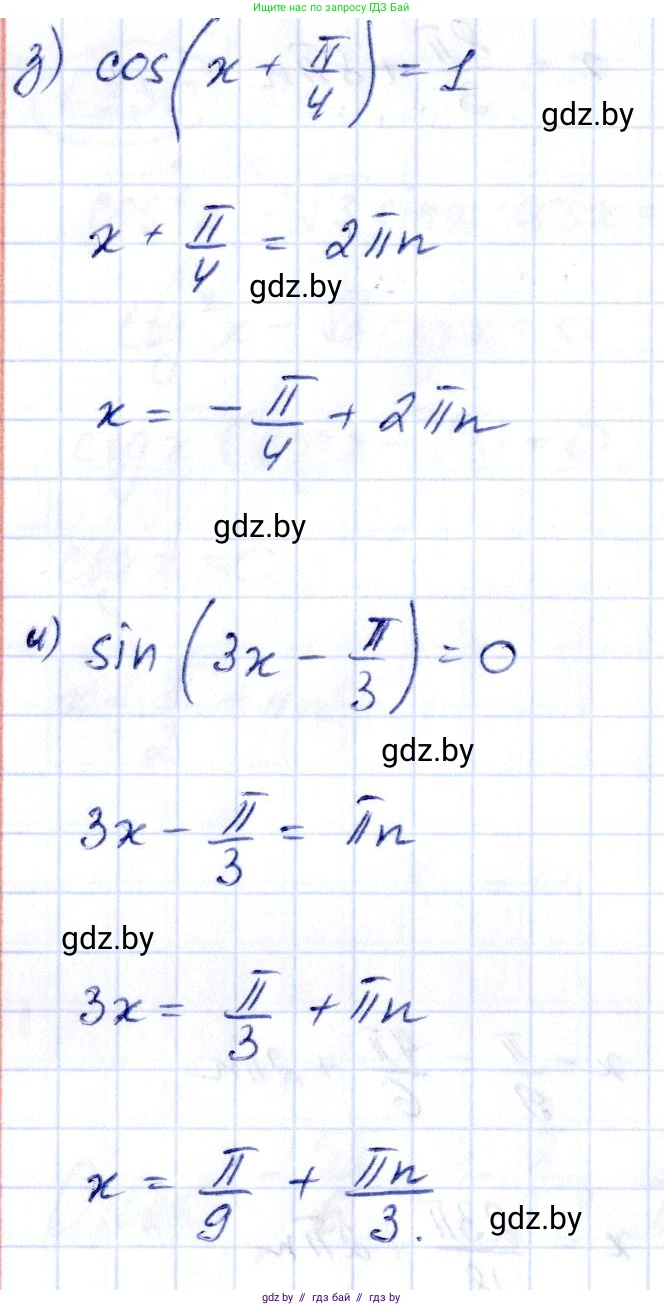 Ищите нас по запросу ГДЗ Бай
з) cos(x + π/4) = 1
gdz.by
x + π/4 = 2πn
gdz.by
x = - π/4 + 2πn
gdz.by
и) sin(3x - π/3) = 0
gdz.by
3x - π/3 = πn
gdz.by
3x = π/3 + πn
x = π/9 + πn/3.
gdz.by
gdz.by // гдз бай // гдз by